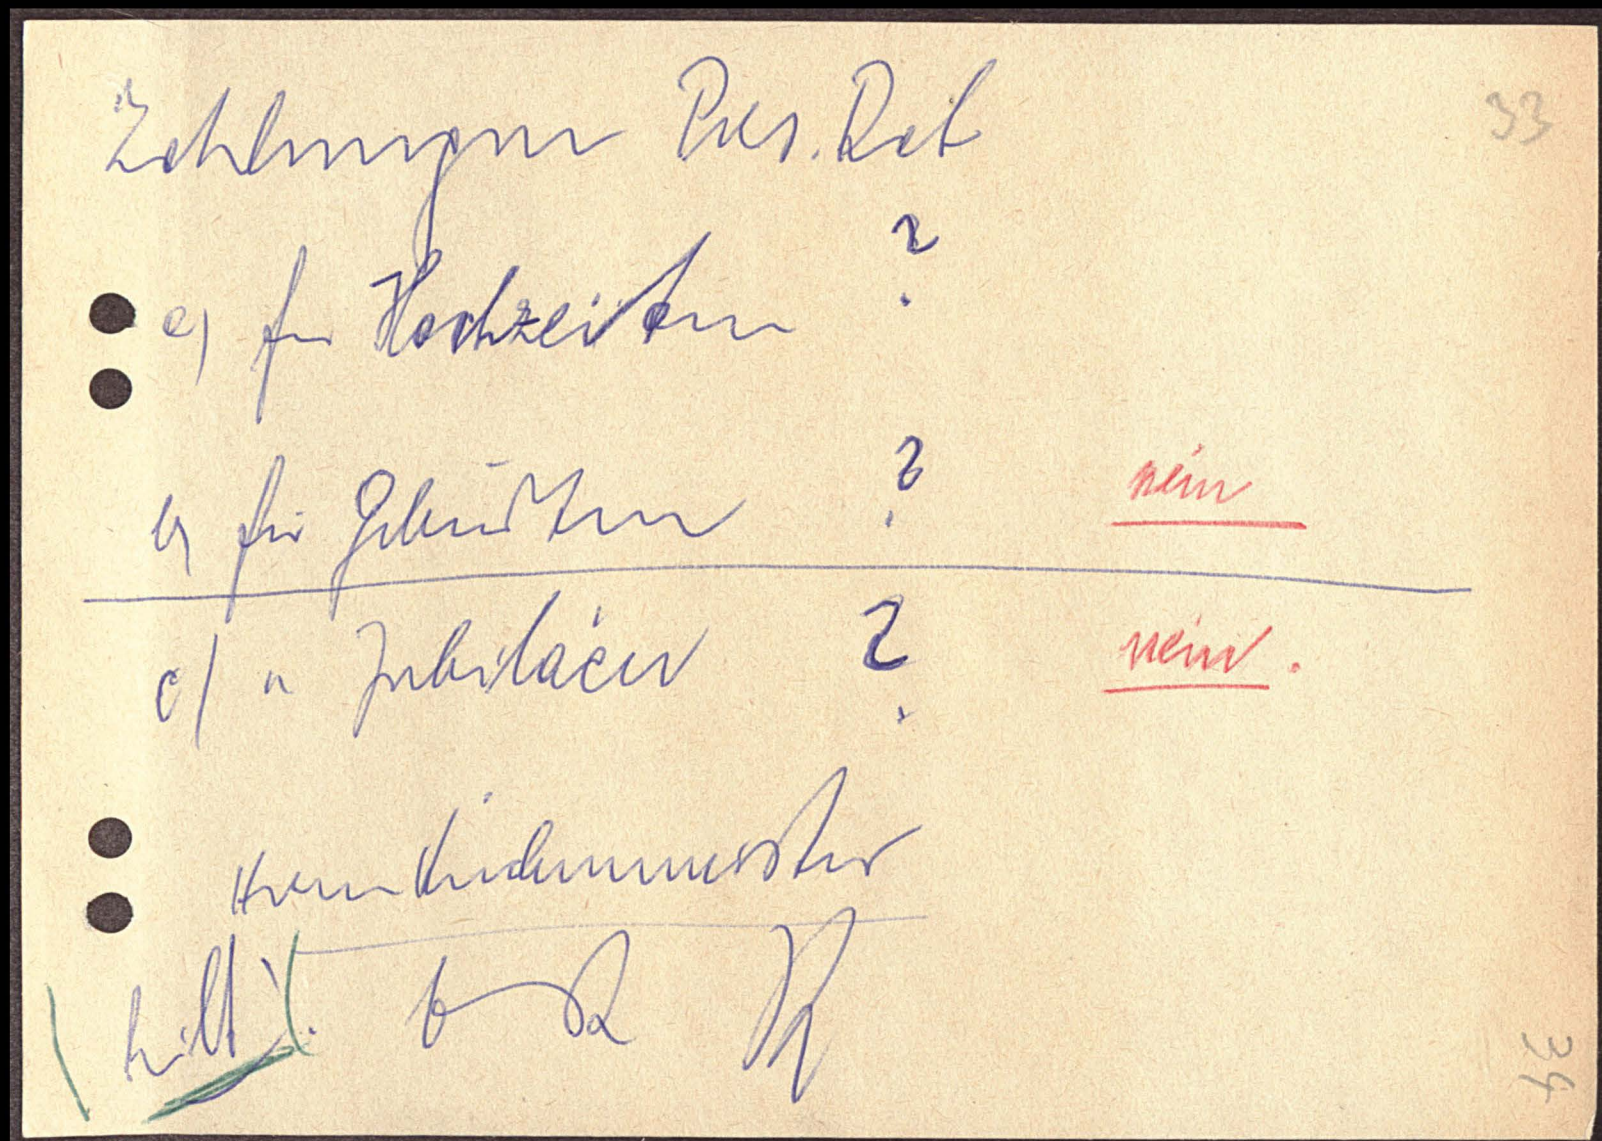 Zahlungen Pers. Rat
33
a) für Hochzeiten ?
b) für Geburten ? nein
c) " Jubiläen ? nein.
Herrn Küchenmeister
34